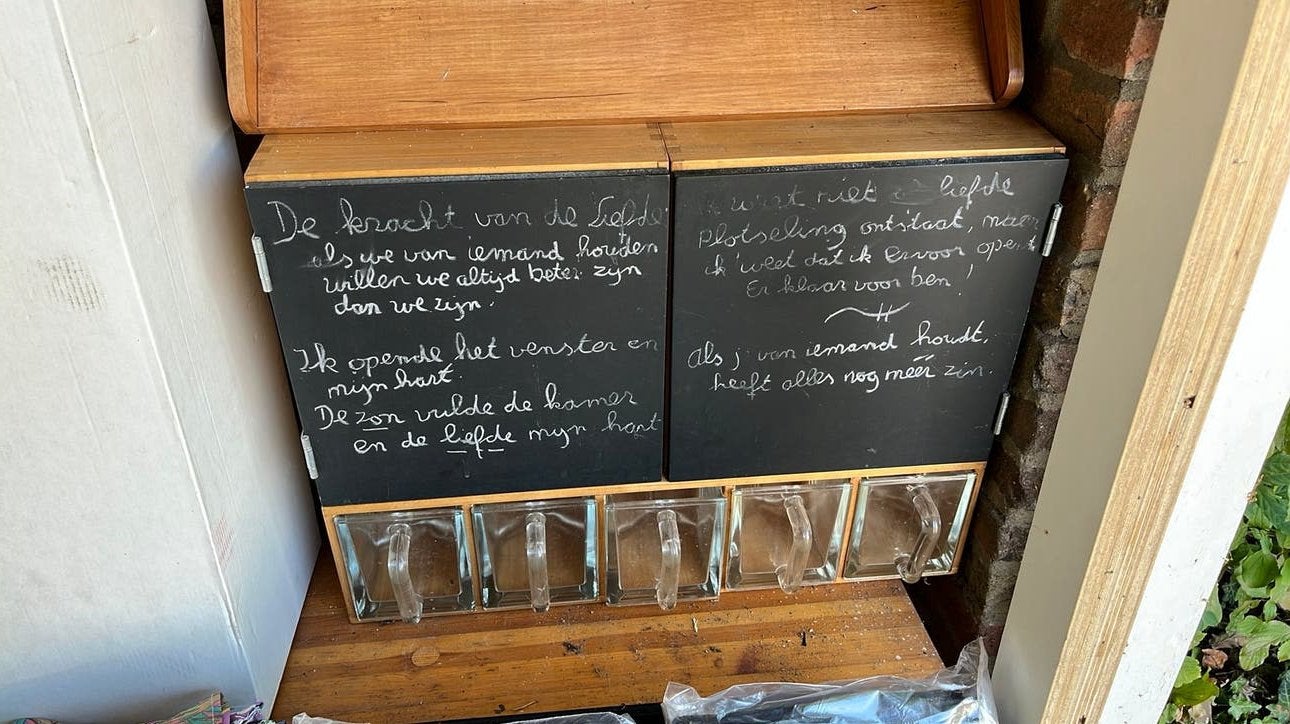 De kracht van de Liefde
als we van iemand houden
willen we altijd beter zijn
dan we zijn.
Ik opende het venster en
mijn hart.
De zon vulde de kamer
en de liefde mijn hart
ik weet niet liefde
plotseling ontstaat, maar
ik weet dat ik ervoor open
Er klaar voor ben!
als j' van iemand houdt,
heeft alles nog méér zin.